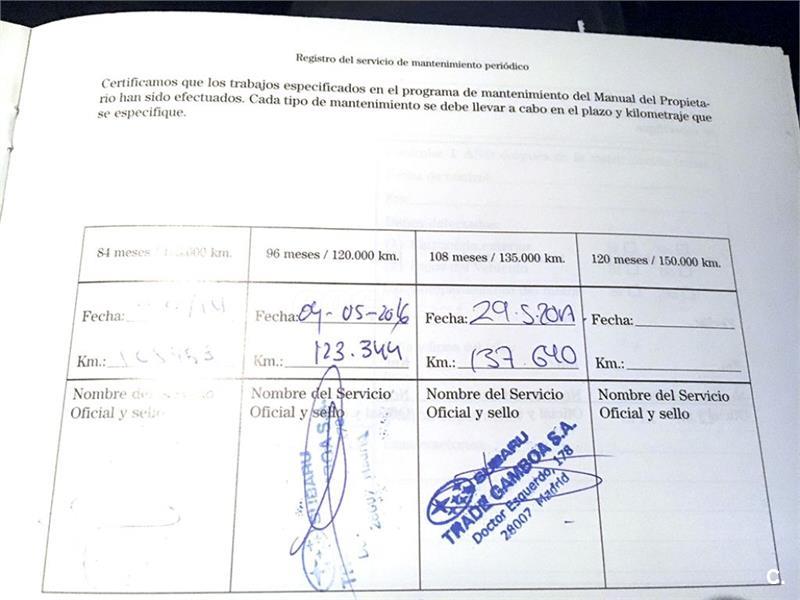 Registro del servicio de mantenimiento periódico
Certificamos que los trabajos especificados en el programa de mantenimiento del Manual del Propieta-
rio han sido efectuados. Cada tipo de mantenimiento se debe llevar a cabo en el plazo y kilometraje que
se especifique.
84 meses / .000 km.
96 meses / 120.000 km.
108 meses / 135.000 km.
120 meses / 150.000 km.
Fecha: /14
Fecha: 04-05-2016
Fecha: 29.5.2017
Fecha:
Km.:
Km.: 123.344
Km.: 137.640
Km.:
Nombre del Servicio
Oficial y sello
Nombre del Servicio
Oficial y sello
SUBARU
GAMBOA S.A.
178
28007 Madrid
Nombre del Servicio
Oficial y sello
SUBARU
TRADE GAMBOA S.A.
Doctor Esquerdo, 178
28007 Madrid
Nombre del Servicio
Oficial y sello
C.